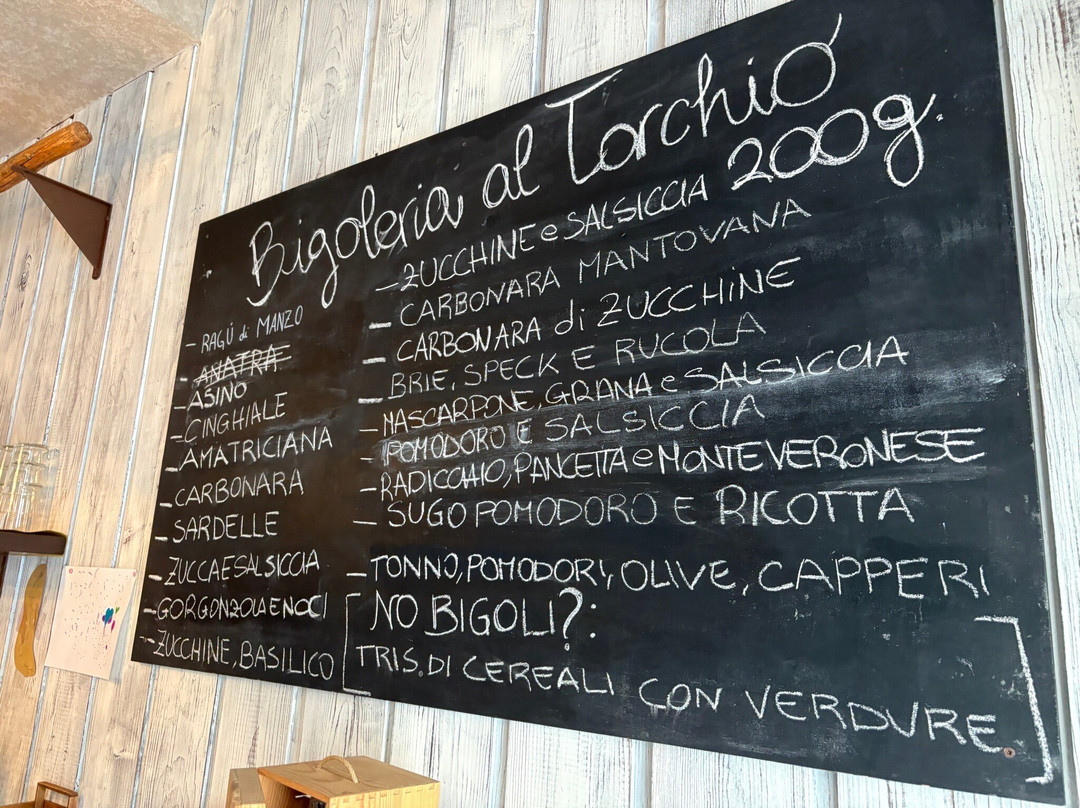 Bigoleria al Torchio
200g.
- RAGÙ di MANZO
- ANATRA
- ASINO
- CINGHIALE
- AMATRICIANA
- CARBONARA
- SARDELLE
- ZUCCA E SALSICCIA
- GORGONZOLA E NOCI
- ZUCCHINE, BASILICO
- ZUCCHINE e SALSICCIA
- CARBONARA MANTOVANA
- CARBONARA di ZUCCHINE
- BRIE, SPECK E RUCOLA
- MASCARPONE, GRANA e SALSICCIA
- POMODORO E SALSICCIA
- RADICCHIO, PANCETTA e MONTEVERONESE
- SUGO POMODORO E RICOTTA
- TONNO, POMODORI, OLIVE, CAPPERI
[NO BIGOLI?:
TRIS.DI CEREALI CON VERDURE]